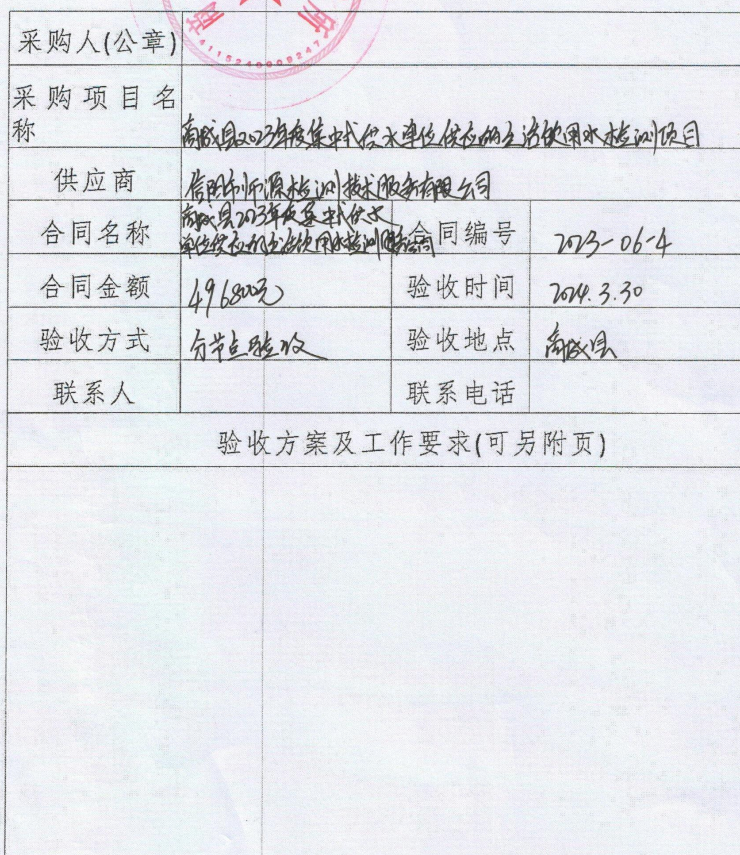 4115240009247
采购人(公章)
采购项目名
称
商城县2023年度集中式供水单位供应的生活饮用水检测项目
供应商
信阳市沂源检测技术服务有限公司
合同名称
商城县2023年度集中式供水
单位供应的生活饮用水检测
合同编号
2023-06-4
合同金额
496800元
验收时间
2024.3.30
验收方式
分节点验收
验收地点
商城县
联系人
联系电话
验收方案及工作要求(可另附页)